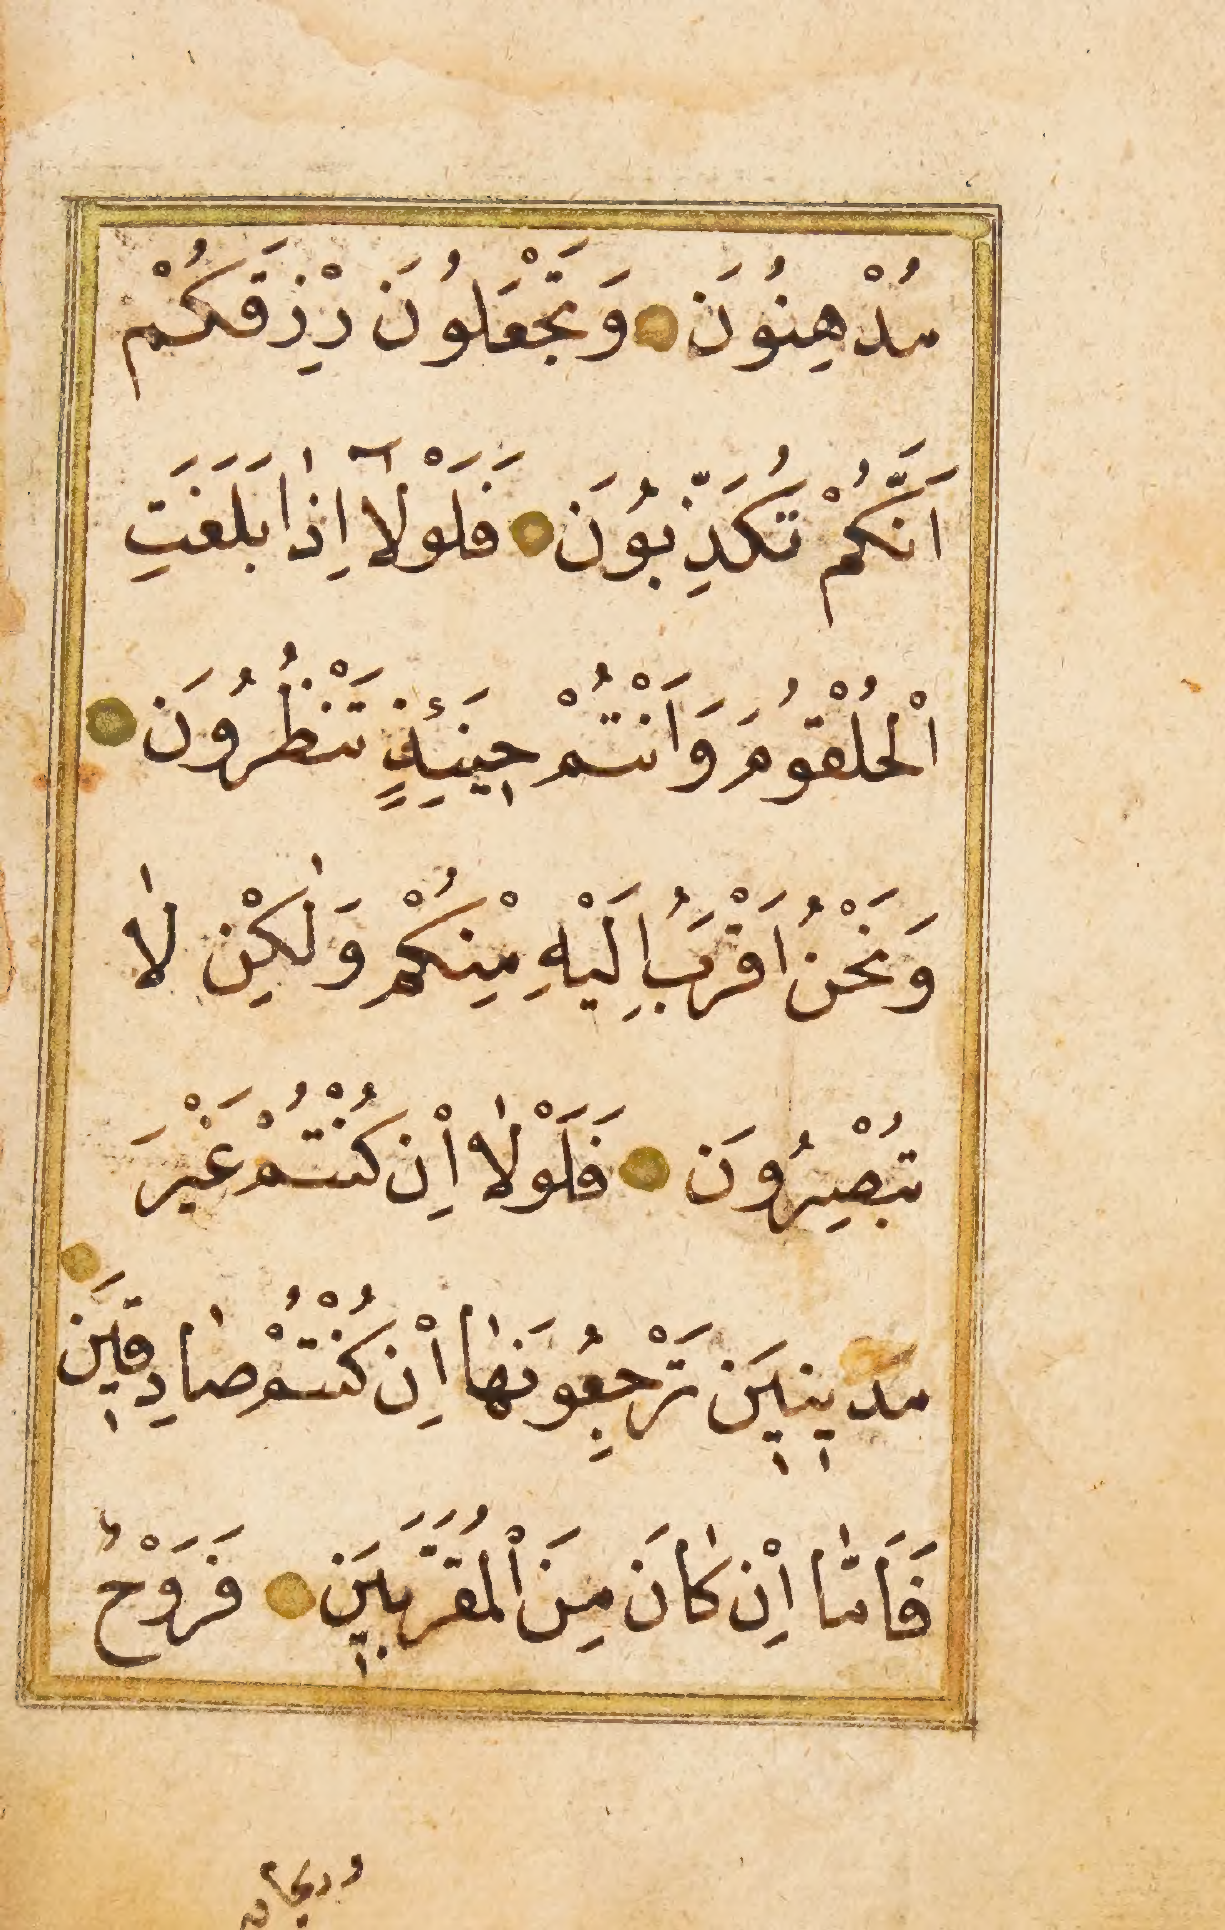 مُدْهِنُونَ وَتَجْعَلُونَ رِزْقَكُمْ
اَنَّكُمْ تُكَذِّبُونَ فَلَوْلَٓا اِذَا بَلَغَتِ
الْحُلْقُومَ وَاَنْتُمْ ح۪ينَئِذٍ تَنْظُرُونَ
وَنَحْنُ اَقْرَبُ اِلَيْهِ مِنْكُمْ وَلٰكِنْ لٰا
تُبْصِرُونَ فَلَوْلٰا اِنْ كُنْتُمْ غَيْرَ
مَد۪ين۪ينَ تَرْجِعُونَهٰا اِنْ كُنْتُمْ صٰادِق۪ينَ
فَاَمّٰا اِنْ كٰانَ مِنَ الْمُقَرَّب۪ينَ فَرَوْحٌ
وريحان